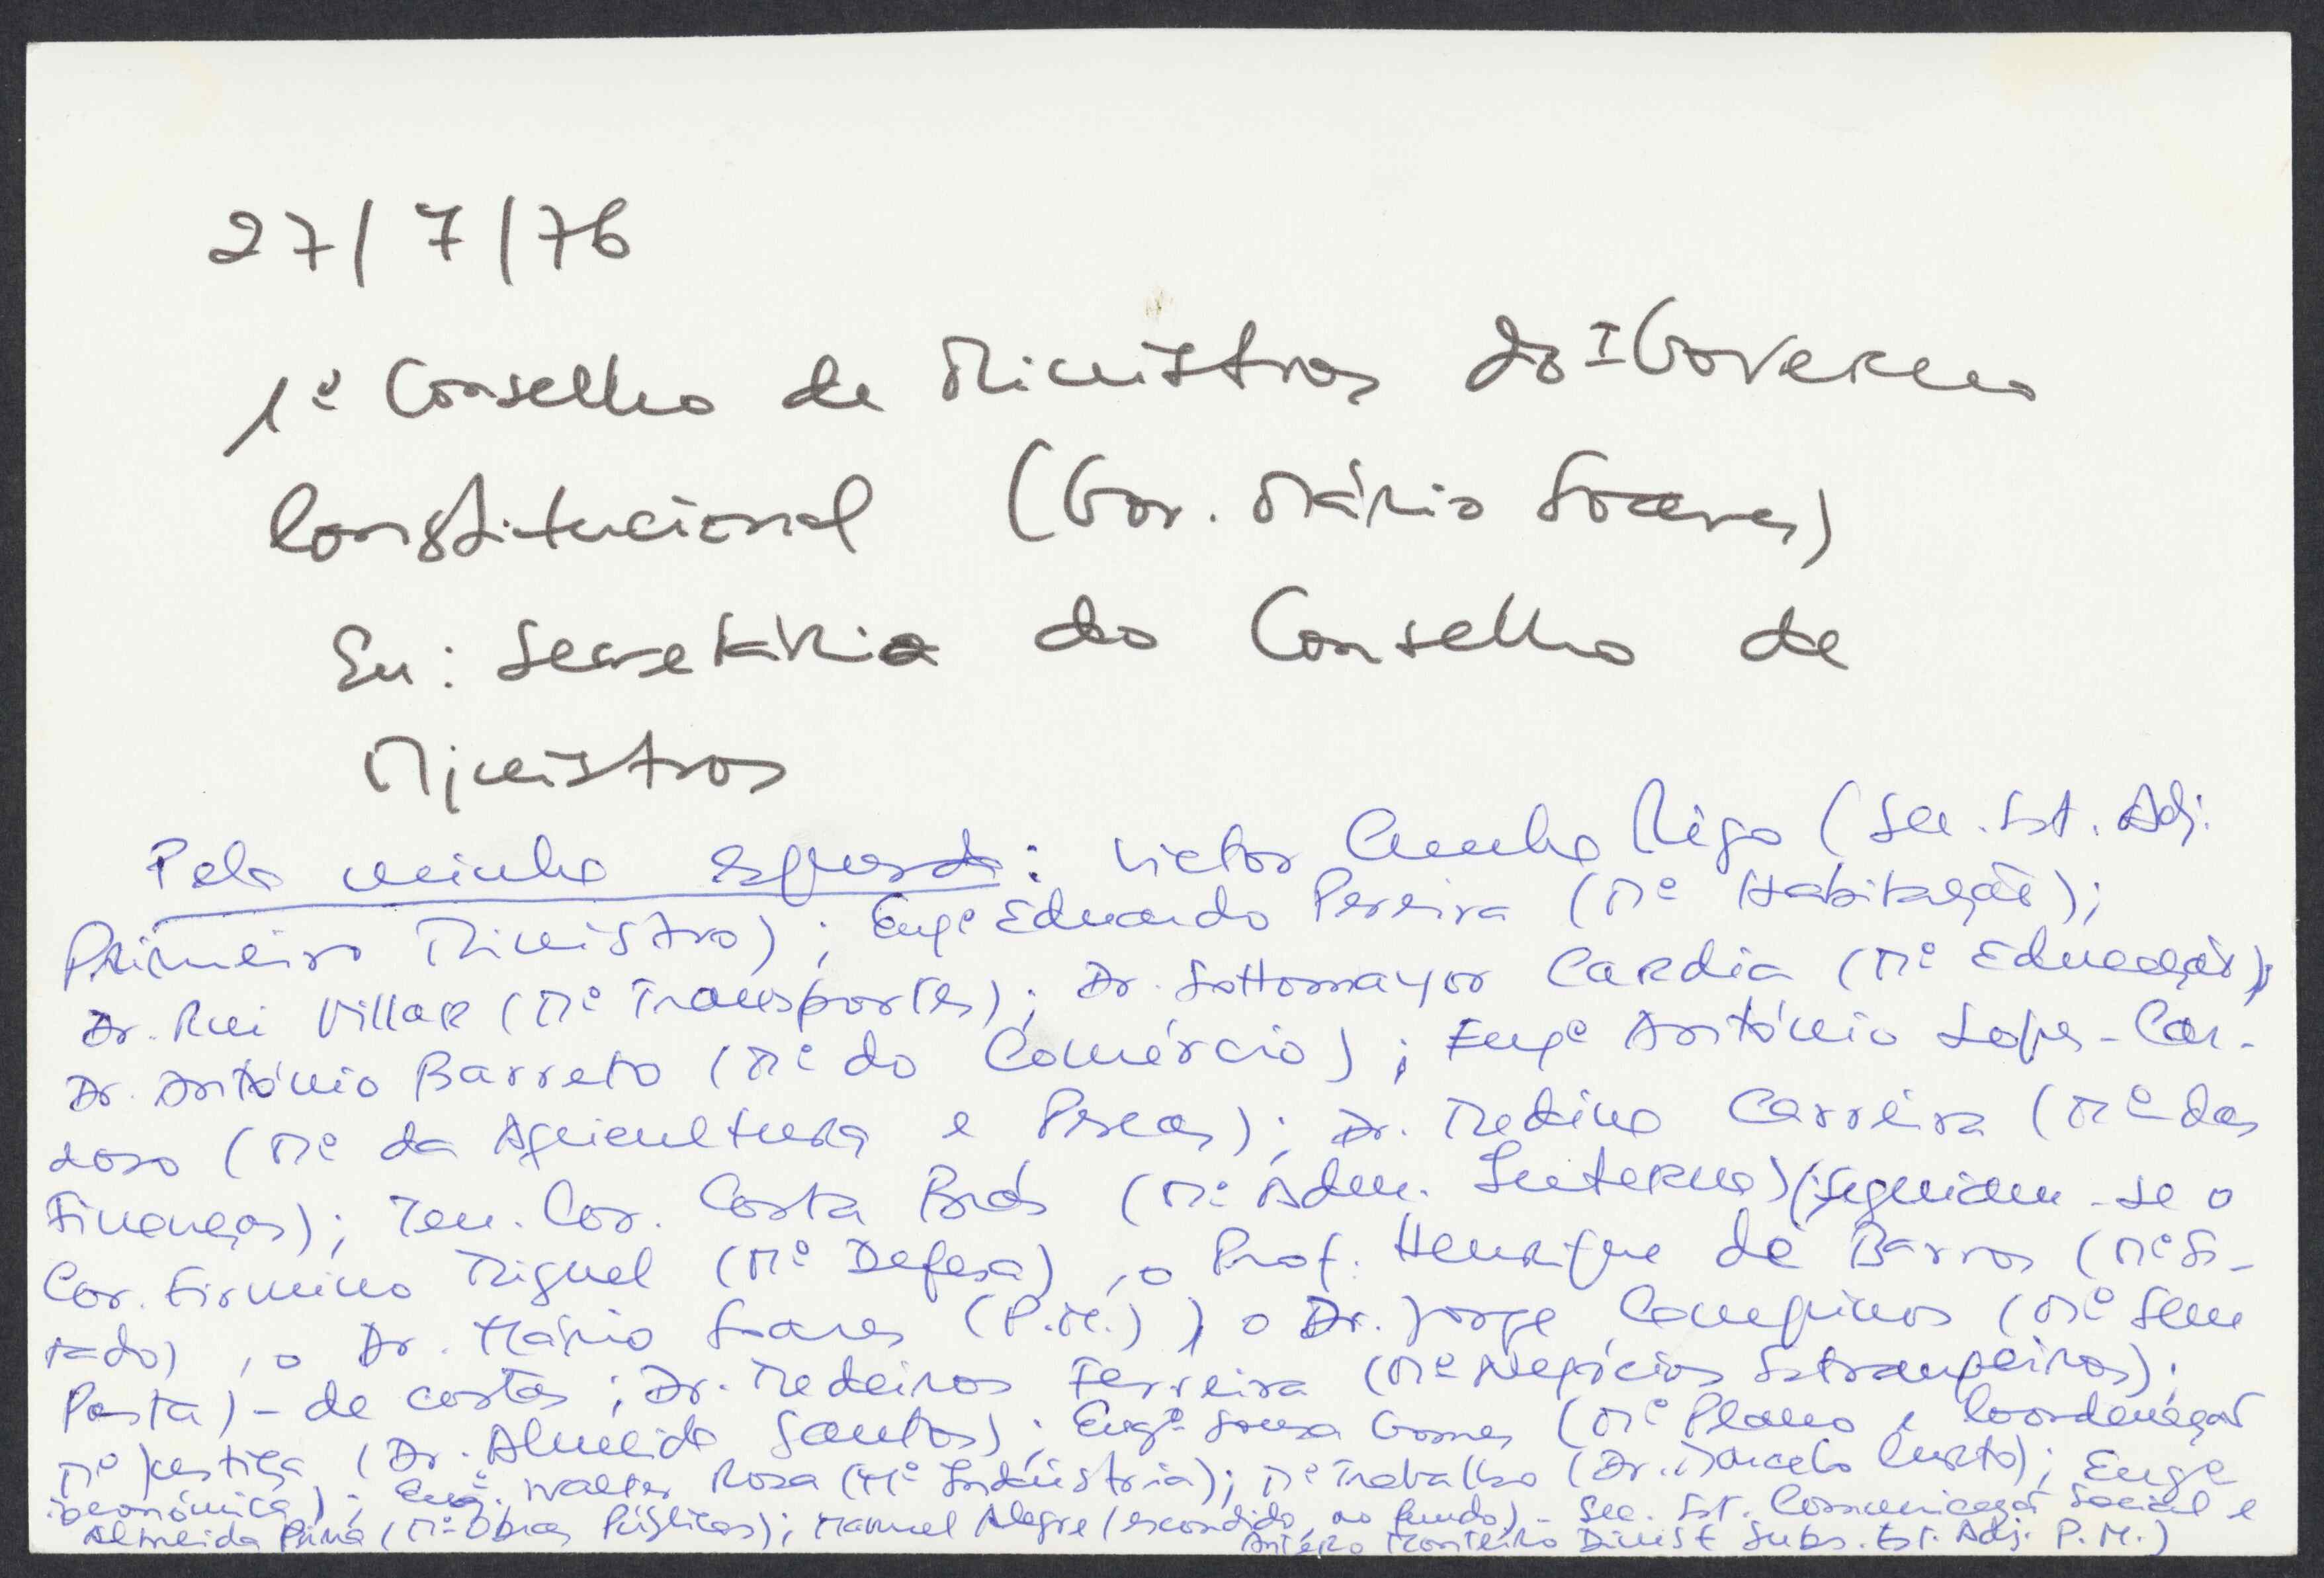 27/7/76
1º Conselho de Ministros do I Governo
Constitucional (Gov. Mário Soares)
Eu: Secretária do Conselho de
Ministros
Pela minha esquerda: Victor Cunha Rego (Sec. Est. Adj.
Primeiro Ministro); Engº Eduardo Pereira (Mº Habitação);
Dr. Rui Villar (Mº Transportes); Dr. Sottomayor Cardia (Mº Educação);
Dr. António Barreto (Mº do Comércio); Engº António Lopes-Car-
doso (Mº da Agricultura e Pescas); Dr. Medina Carreira (Mº das
Finanças); Ten. Cor. Costa Brás (Mº Adm. Interna) (seguiam-se o
Cor. Firmino Miguel (Mº Defesa), o Prof. Henrique de Barros (Mº Es-
tado), o Dr. Mário Soares (P.M.)) o Dr. Jorge Campinos (Mº Sem
Pasta) - de costas; Dr. Medeiros Ferreira (Mº Negócios Estrangeiros);
Mº Justiça (Dr. Almeida Santos); Engº Sousa Gomes (Mº Plano e Coordenação
económica); Engº. Walter Rosa (Mº Indústria); Mº Trabalho (Dr. Marcelo Curto); Engº
Almeida Pina (Mº Obras Públicas); Manuel Alegre (escondido, ao fundo) - Sec. Est. Comunicação Social e
António Monteiro Diniz Subs. Est. Adj. P.M.)